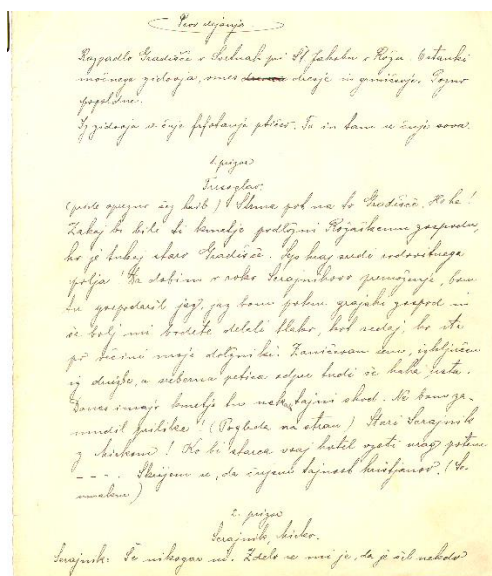 Prvo dejanje.
Razpadlo Gradišče v Svetnah pri Št. Jakobu v Rožu. Ostanki
močnega zidovja, vmes drevje in grmičevje. Pozno
popoldne.
Iz zidovja se čuje frfotanje ptičev. Tu in tam se čuje sova.
1. prizor
Trسoglav:
(pride oprezno čez hrib) Strma pot na to Gradišče. Hehe!
Zakaj bi bili ti kmetje podložni Rožaškemu gospodu,
ko je tukaj staro Gradišče. Lep kraj sredi rodovitnega
polja! Ko dobim v roke Serajnikovo premoženje, bom
tu gospodaril jaz, jaz bom potem grajski gospod in
še bolj mi bodete delali tlako, kot sedaj, ko ste
po večini moji dolžniki. Zaničevan sem, izključen
iz družbe, a srebrna petica odpre tudi še baba usta.
Danes imajo kmetje tu nek tajni shod. Ne bom za-
mudil prilike! (Pogleda na stran) Stari Serajnik
z Mickom! Ko bi starca vsaj hotel vzeti vrag potem
- - - - Skrijem se, da čujem tajnost kristjanov. (Se
umakne)
2. prizor
Serajnik, Micko.
Serajnik: Še nikogar ni. Zdelo se mi je, da je šel nekdo